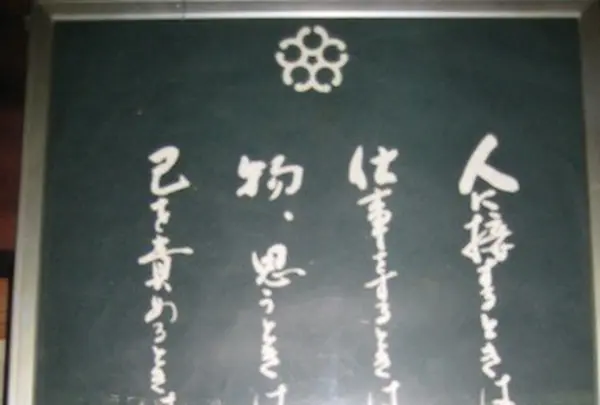 人に接するときは
仕事をするときは
物、思うときは
己を責めるときは